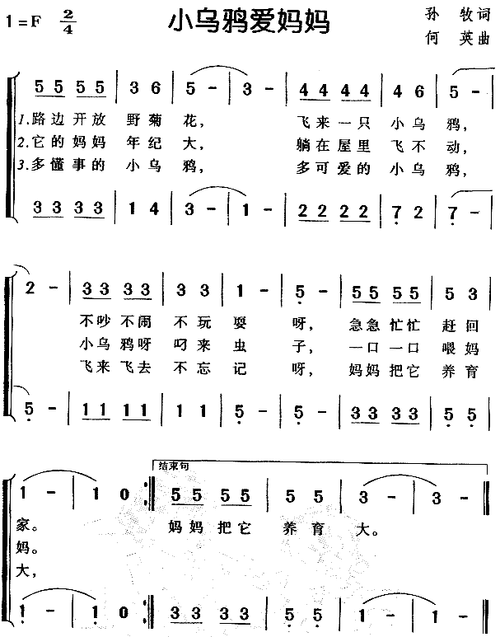 小乌鸦爱妈妈
1=F 2/4
孙 牧 词
何 英 曲
5 5 5 5 | 3 6 | 5 - | 3 - | 4 4 4 4 | 4 6 | 5 -
1.路边开放 野菊 花, 飞来一只 小乌 鸦,
2.它的妈妈 年纪 大, 躺在屋里 飞不 动,
3.多懂事的 小乌 鸦, 多可爱的 小乌 鸦,
3 3 3 3 | 1 4 | 3 - | 1 - | 2 2 2 2 | 7 2 | 7 -
2 - | 3 3 3 3 | 3 3 | 1 - | 5 - | 5 5 5 5 | 5 3
不吵不闹 不玩 耍 呀, 急急忙忙 赶回
小乌鸦呀 叼来 虫 子, 一口一口 喂妈
飞来飞去 不忘 记 呀, 妈妈把它 养育
5 - | 1 1 1 1 | 1 1 | 5 - | 5 - | 3 3 3 3 | 5 5
结束句
1 - | 1 0 :| 5 5 5 5 | 5 5 | 3 - | 3 -
家。 妈妈把它 养育 大。
妈。
大,
1 - | 1 0 :| 3 3 3 3 | 5 5 | 1 - | 1 -